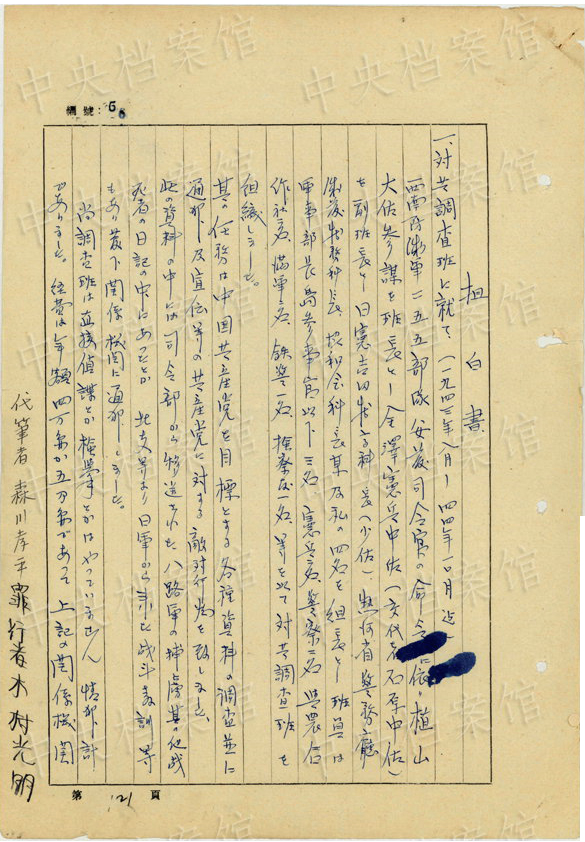 編號：6
坦白書
一、対共調査班に就て、(一九四三年八月―四四年一〇月迄)
西南防衛軍一五五部隊安藤司令官の命令に依り植山
大佐参謀を班長とし金澤憲兵中佐(交代者石原中佐)
を副班長とし日憲吉田特高科長(少佐)熱河省警務廳
特務科長、某及私の四名を組長とし班員は
軍事部長島参事官以下三名、憲兵二名、警察二名、興農合
作社二名、満軍二名、鉄警一名、検察庁一名、等を以て対共調査班を
組織しました。
其の任務は中国共産党を目標とする各種資料の調査並に
通報し及宣伝等の共産党に対する敵対行為を致しました。
此の資料の中には司令部から移送された八路軍の捕虜其の他战
死者の日記の中にあったとか北支軍より日軍から来た战斗教訓等
もあり夫々下関係機関に通報しました。
尚調査班は直接偵諜とか検挙とかはやっていません 情報計
でありました。経費は年額四万円か五万円であって上記の関係機関
代筆者 森川孝平 罪行者 木村光明
第 121 頁
中央档案馆